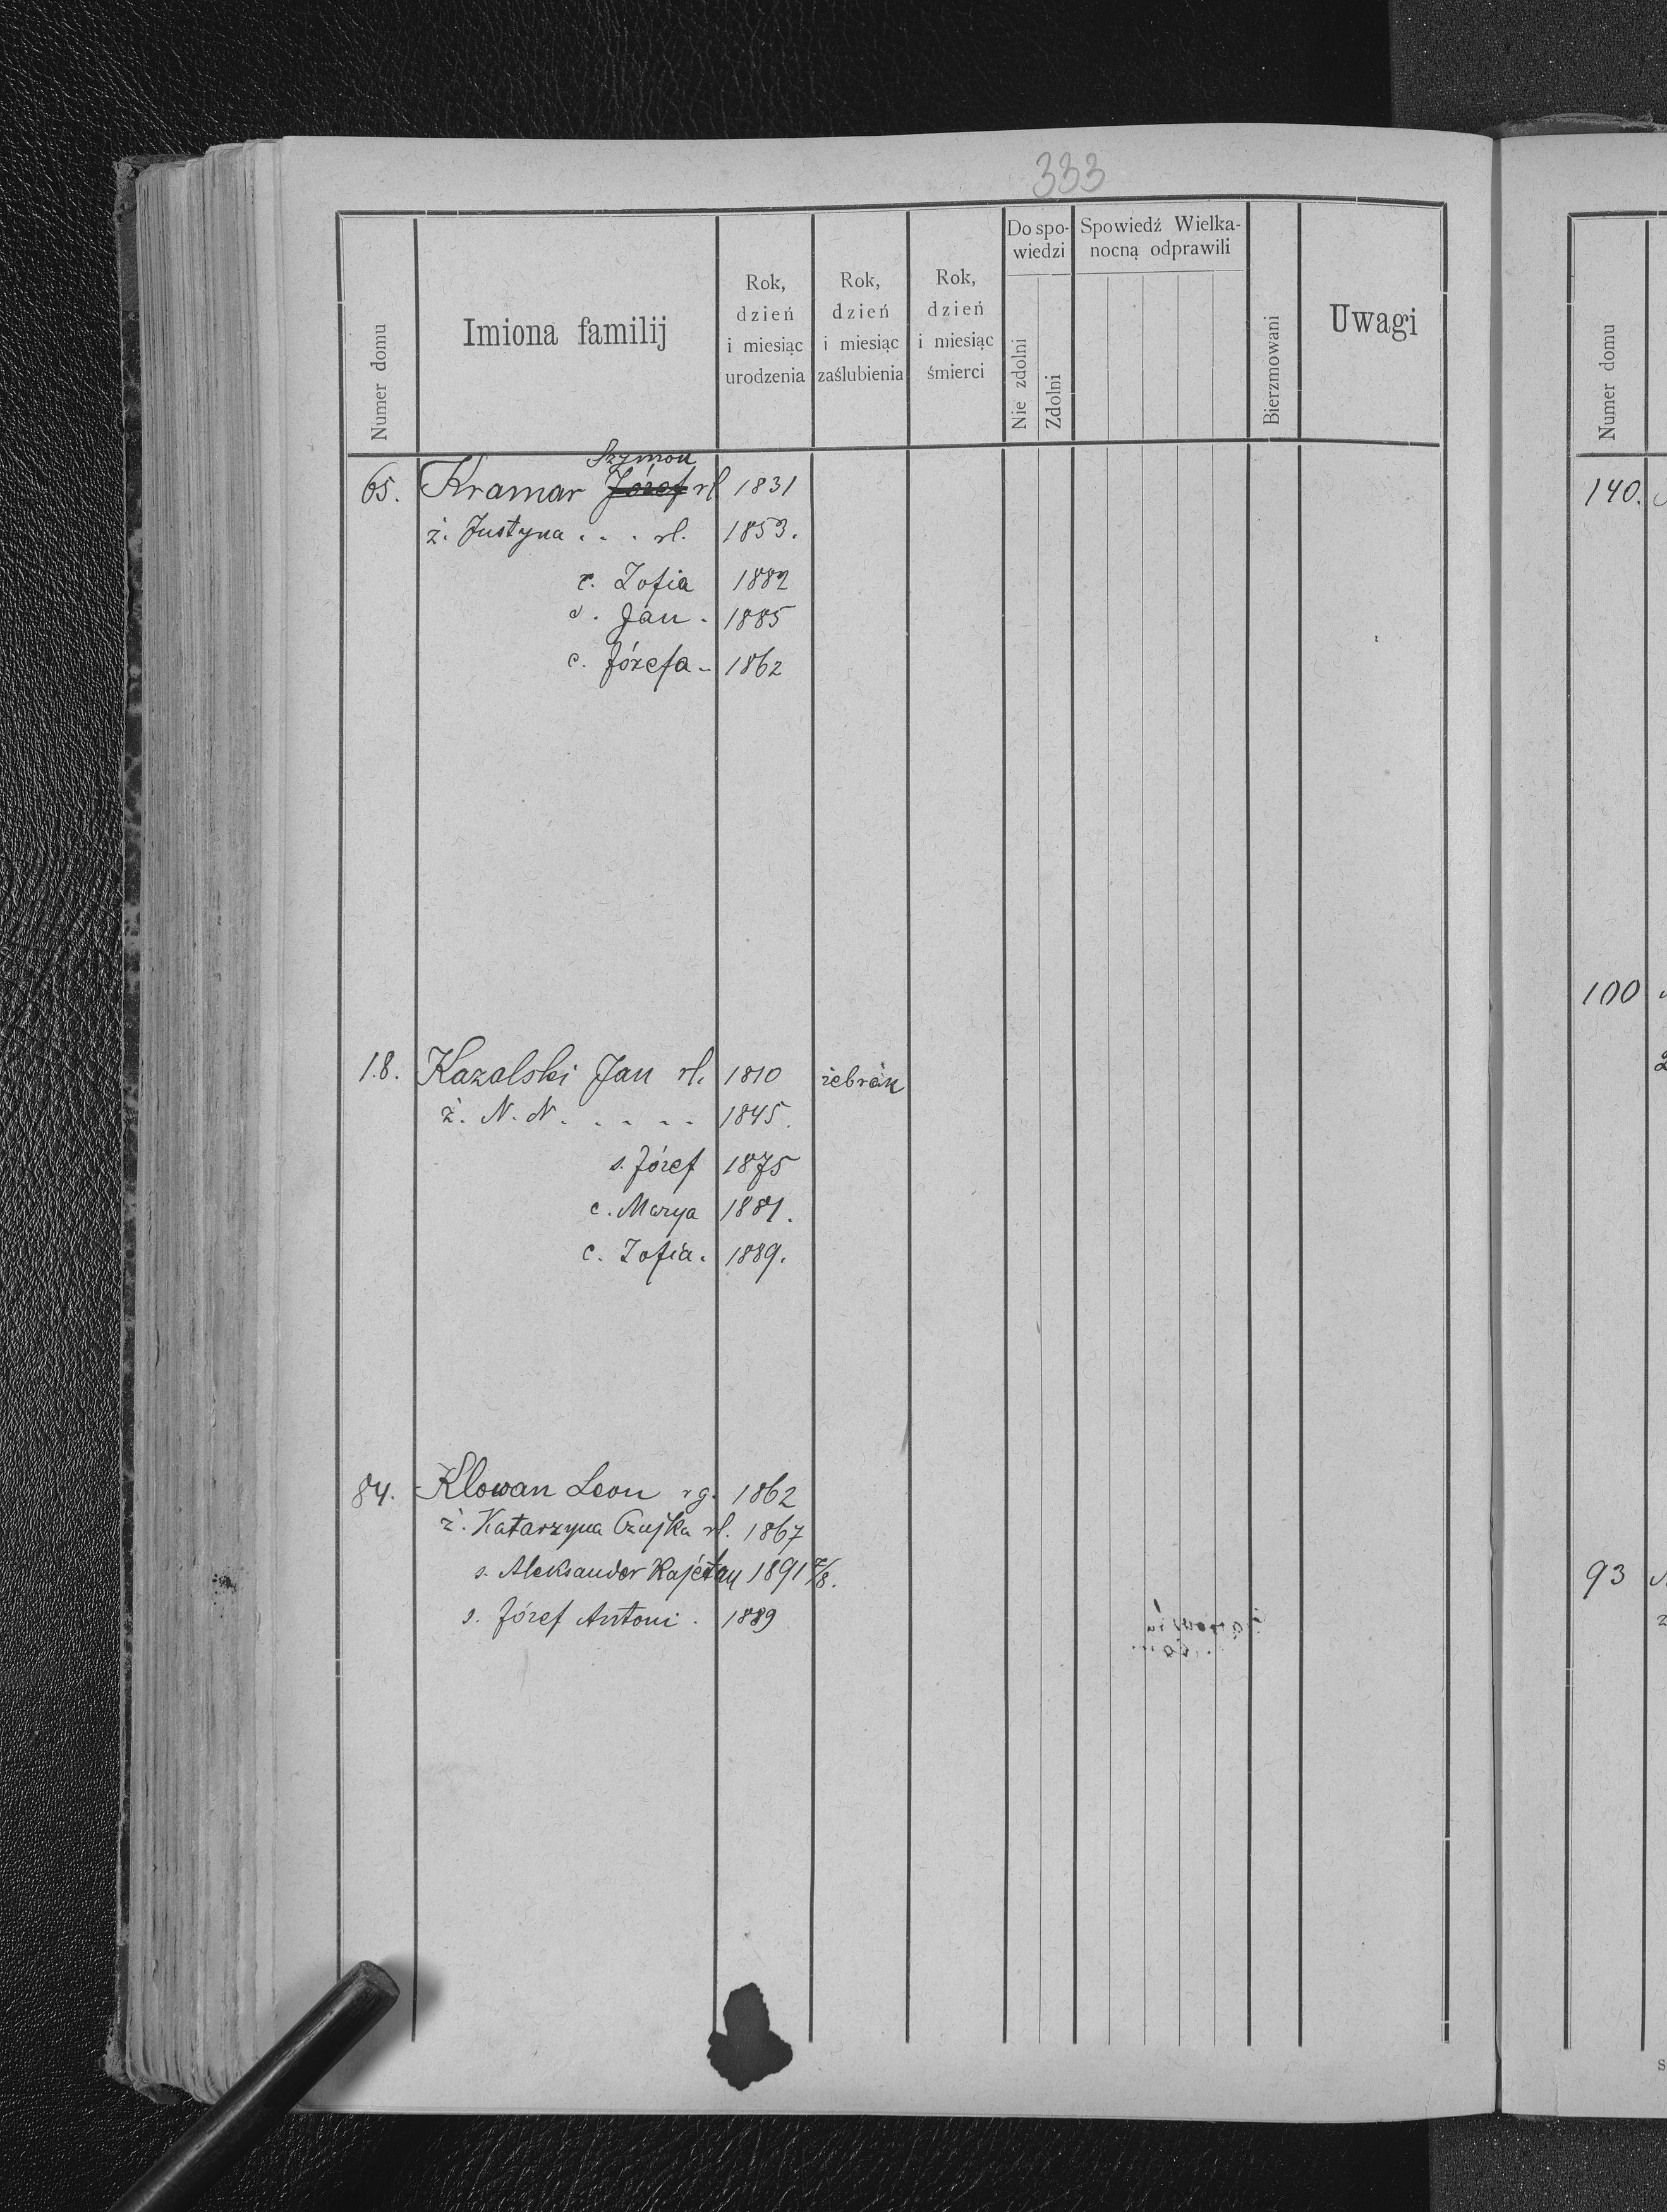 333
Numer domu
Imiona familij
Rok, dzień i miesiąc urodzenia
Rok, dzień i miesiąc zaślubienia
Rok, dzień i miesiąc śmierci
Do spo-wiedzi
Nie zdolni
Zdolni
Spowiedź Wielka-nocną odprawili
Bierzmowani
Uwagi
Szymon
65. Kramar Józef rl 1831
ż. Justyna . . . rl. 1853.
c. Zofia 1882
s. Jan . 1885
c. Józefa .. 1862
18. Kazalski Jan rl. 1810 żebrak
ż. N. N. . . . . 1845.
s. Józef 1875
c. Marya 1881.
c. Zofia . 1889.
84. Klowan Leon rg. 1862
ż. Katarzyna Czujka rl. 1867
s. Aleksander Kajetan 1891 7/8.
s. Józef Antoni . 1889
Numer domu
140.
100
93